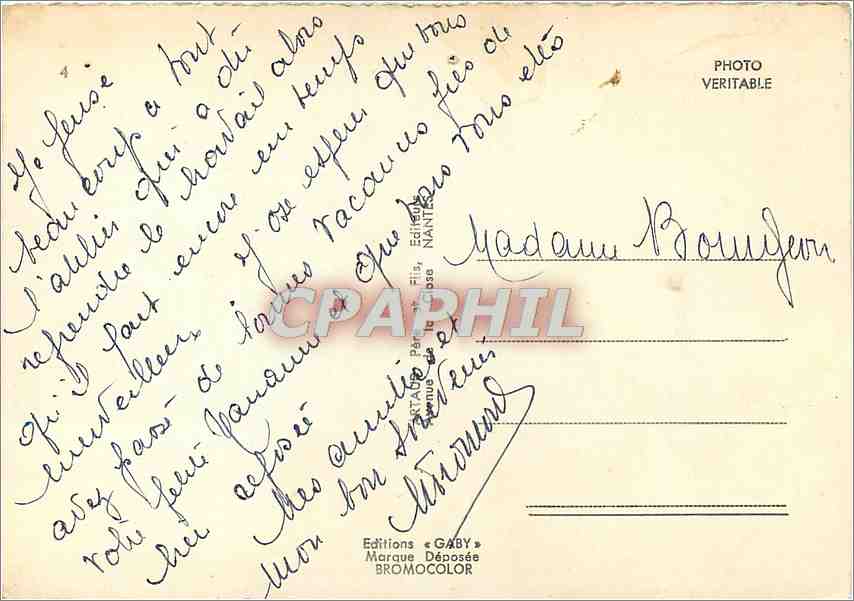 4
Je pense
beaucoup a tout
l'atelier qui a dû
reprendre le travail alors
qu'il fait encore un temps
merveilleux J'ose esperer que vous
avez passé de bonnes vacances près de
votre petite et que vous vous etes
bien reposé
Mes amitiés et
mon bon souvenir
PHOTO
VERITABLE
Madame
ARTAUD Père et Fils, Editeurs
Avenue de la Close NANTES
CPAPHIL
Editions « GABY »
Marque Déposée
BROMOCOLOR